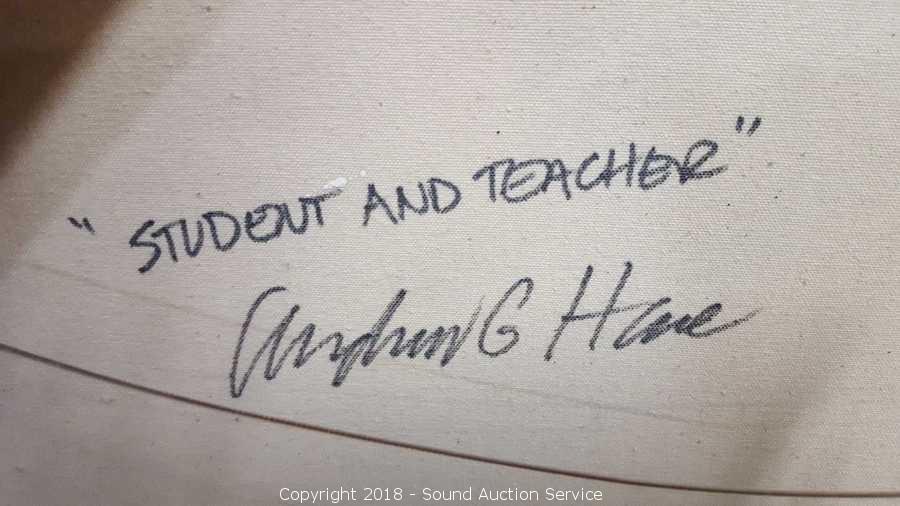 "STUDENT AND TEACHER"
G Hare
Copyright 2018 - Sound Auction Service